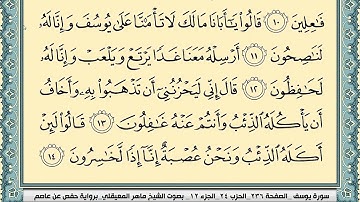 فَٰعِلِينَ ١٠ قَالُوا۟ يَٰٓأَبَانَا مَالَكَ لَا تَأْمَ۫نَّا عَلَىٰ يُوسُفَ وَإِنَّا لَهُۥ
لَنَٰصِحُونَ ١١ أَرْسِلْهُ مَعَنَا غَدًا يَرْتَعْ وَيَلْعَبْ وَإِنَّا لَهُۥ
لَحَٰفِظُونَ ١٢ قَالَ إِنِّى لَيَحْزُنُنِىٓ أَن تَذْهَبُوا۟ بِهِۦ وَأَخَافُ
أَن يَأْكُلَهُ ٱلذِّئْبُ وَأَنتُمْ عَنْهُ غَٰفِلُونَ ١٣ قَالُوا۟ لَئِنْ
أَكَلَهُ ٱلذِّئْبُ وَنَحْنُ عُصْبَةٌ إِنَّآ إِذًا لَّخَٰسِرُونَ ١٤
سورة يوسف _الصفحة ٢٣٦_ الحزب ٢٤_ الجزء ١٢_ بصوت الشيخ ماهر المعيقلي_ برواية حفص عن عاصم